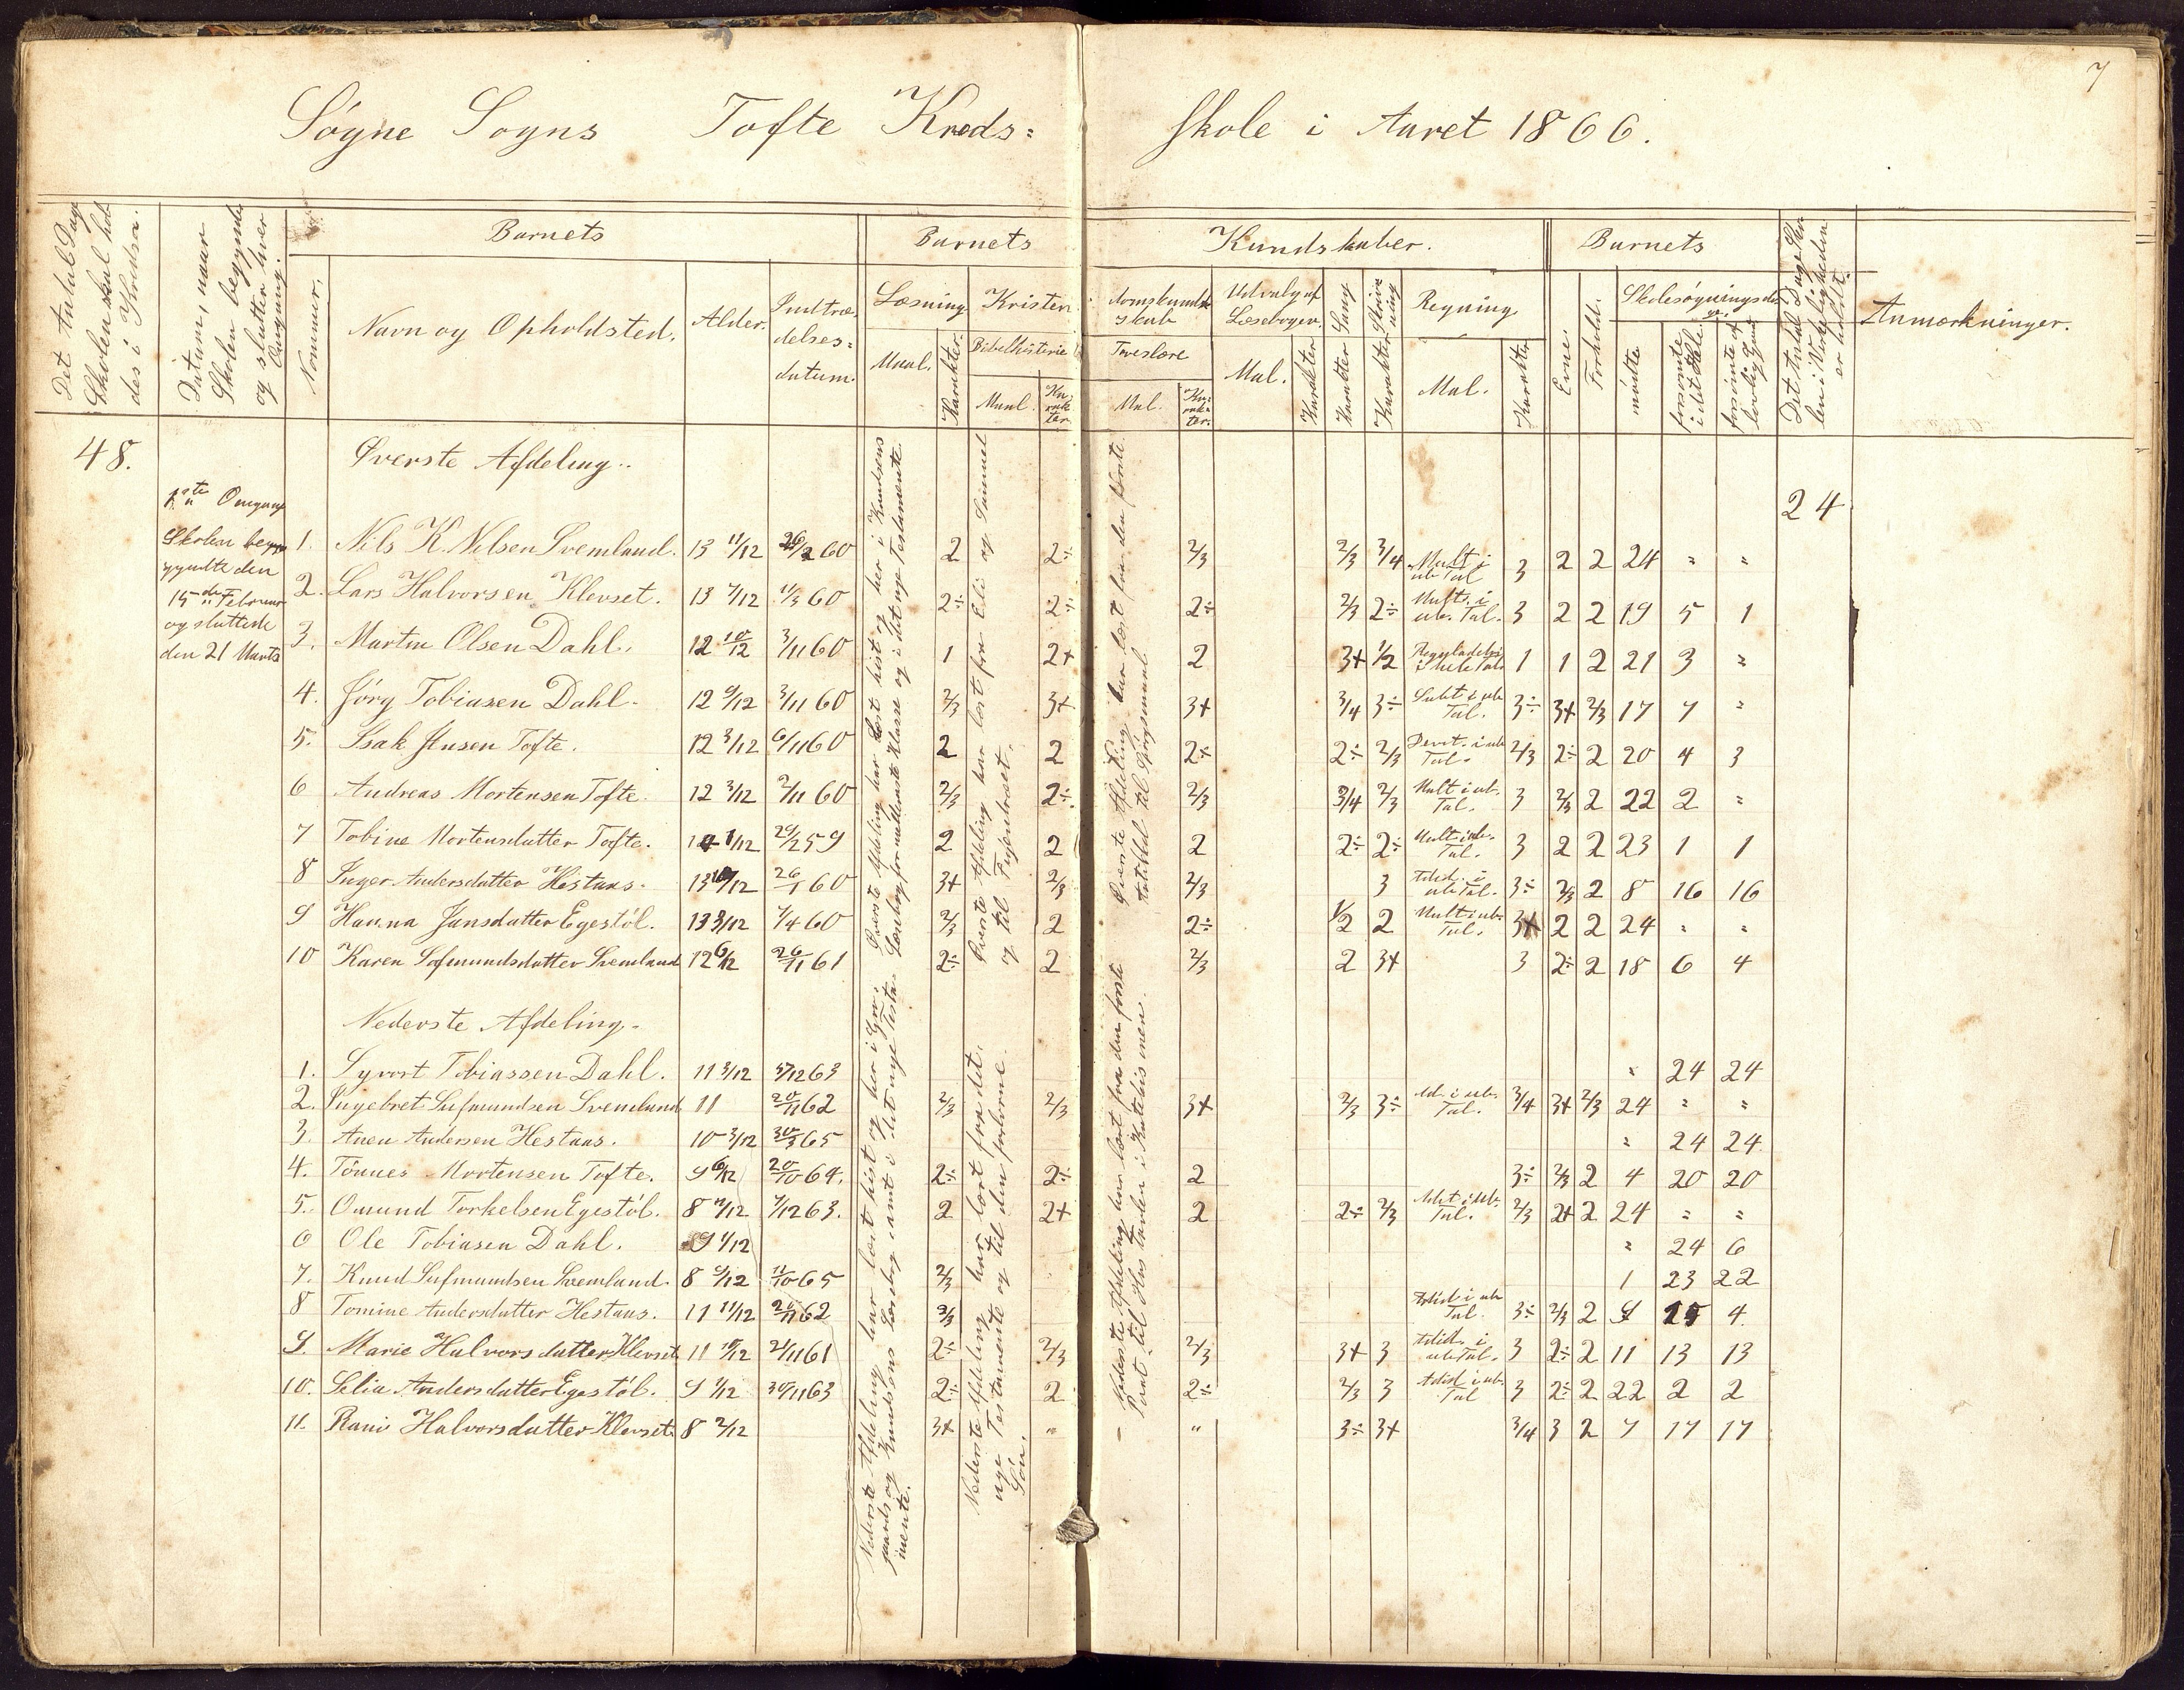 7
Søgne Sogns Tofte Kreds= skole i Aaret 1866.
Det Antal Dage Skolen skal holdes i Kredsen.
Datum, naar Skolen begynder og slutter hver Omgang.
Nommer.
Barnets
Navn og Opholdsted.
Alder.
Indtrædelses=datum.
Barnets Kundskaber.
Læsning
Maal.
Karakter.
Kristendomskundskab
Bibelhistorie
Maal.
Karakter
Troeslære
Mal.
Karakter.
Udvalg af Læsebogen.
Mal.
Karakter
Sang
Karakter
Skrivning
Karakter
Regning
Mal.
Karakter
Barnets
Evne.
Forhold.
Skolesøgningsdage.
mødte
forsømte i det Hele.
forsømte af lovlig Grund
Det Antal Dage Skolen i Virkeligheden er holdt.
Anmærkninger.
48.
Øverste Afdeling..
24
1ste Omgang
Skolen begyndte den 15de Februar og sluttede den 21 Marts
1. Nils K. Nilsen Tvemland. 13 11/12 26/2 60 2 2÷ 2/3 2/3 3/4 Mult i ub Tal 3 2 2 24 " "
2. Lars Halvorsen Klevset. 13 7/12 11/3 60 2÷ 2÷ 2÷ 2/3 2÷ Mult. i ub. Tal. 3 2 2 19 5 1
3. Martin Olsen Dahl. 12 10/12 3/11 60 1 2+ 2 3+ 1/2 1 1 2 21 3 "
4. Jørg Tobiasen Dahl. 12 9/12 3/11 60 2/3 3+ 3+ 3/4 3÷ Subt i ub Tal. 3÷ 3+ 2/3 17 7 "
5. Isak Jensen Tofte. 12 3/12 6/11 60 2 2 2÷ 2÷ 2/3 i ub Tal. 2/3 2÷ 2 20 4 3
6 Andreas Mortensen Tofte. 12 3/12 2/11 60 2/3 2÷ 2/3 3/4 2/3 Mult i ub. Tal. 3 2/3 2 22 2 "
7 Tobine Mortensdatter Tofte. 14 1/12 29/2 59 2 2 2 2÷ 2÷ Mult i ub. Tal. 3 2 2 23 1 1
8 Inger Andersdatter Hestaas. 13 10/12 26/1 60 3+ 2/3 2/3 3 Adid. i ub Tal. 3÷ 2/3 2 8 16 16
9 Hanna Jansdatter Egestøl. 13 3/12 7/4 60 2/3 2 2÷ 1/2 2 Mult i ub. Tal. 3+ 2 2 24 " "
10 Karen Sofmundsdatter Tvemland 12 6/12 26/11 61 2÷ 2 2/3 2 3+ 3 2÷ 2 18 6 4
Øverste Afdeling har læst hist og her i Knudsens Læsebog for mellemste Klasse og i det nye Testamente
Øverste Afdeling har læst fra Eli og Samuel og til Figentræet.
Øverste Afdeling har læst fra den første Artikkel til Spørgsmaal
Nederste Afdeling.
1. Syvert Tobiassen Dahl. 11 3/12 5/12 63 " 24 24
2. Ingebret Sufmundsen Tvemland 11 20/11 62 2/3 2/3 3+ 2/3 3÷ Ad. i ub. Tal. 3/4 3+ 2/3 24 " "
3. Anen Andersen Hestaas. 10 3/12 30/3 65 " 24 24
4. Tønnes Mortensen Tofte. 9 6/12 20/10 64. 2÷ 2÷ 2 3÷ 2/3 2 4 20 20
5. Omund Torkelsen Egestøl. 8 7/12 7/12 63. 2 2+ 2 2÷ 2/3 i ub. Tal. 2/3 2+ 2 24 " "
6 Ole Tobiasen Dahl. 9 1/12 " 24 6
7. Knud Sufmundsen Tvemland. 8 9/12 11/10 65 2/3 1 23 22
8 Tomine Andersdatter Hestaas. 11 11/12 20/11 62 3/3 Adid i ub Tal. 3÷ 2/3 2 9 15 4.
9. Marie Halvorsdatter Klevset. 11 10/12 21/11 61 2÷ 2/3 2/3 3+ 3 Adid. i ub Tal. 3 2÷ 2 11 13 13
10. Selia Andersdatter Egestøl. 9 1/12 30/11 63 2÷ 2 2÷ 2/3 3 Adid i ub. Tal 3 2÷ 2 22 2 2
11. Rani Halvorsdatter Klevset. 8 2/12 3+ " " 3÷ 3+ 3/4 3 2 7 17 17
Nederste Afdeling har læst hist og her i Knudsens Læsebog samt i det nye Testamente.
Nederste Afdeling har læst fra det nye Testamente og til den forlorne Søn.
Nederste Afdeling har læst fra den første Part til Hus Tavlen i Katekismen.